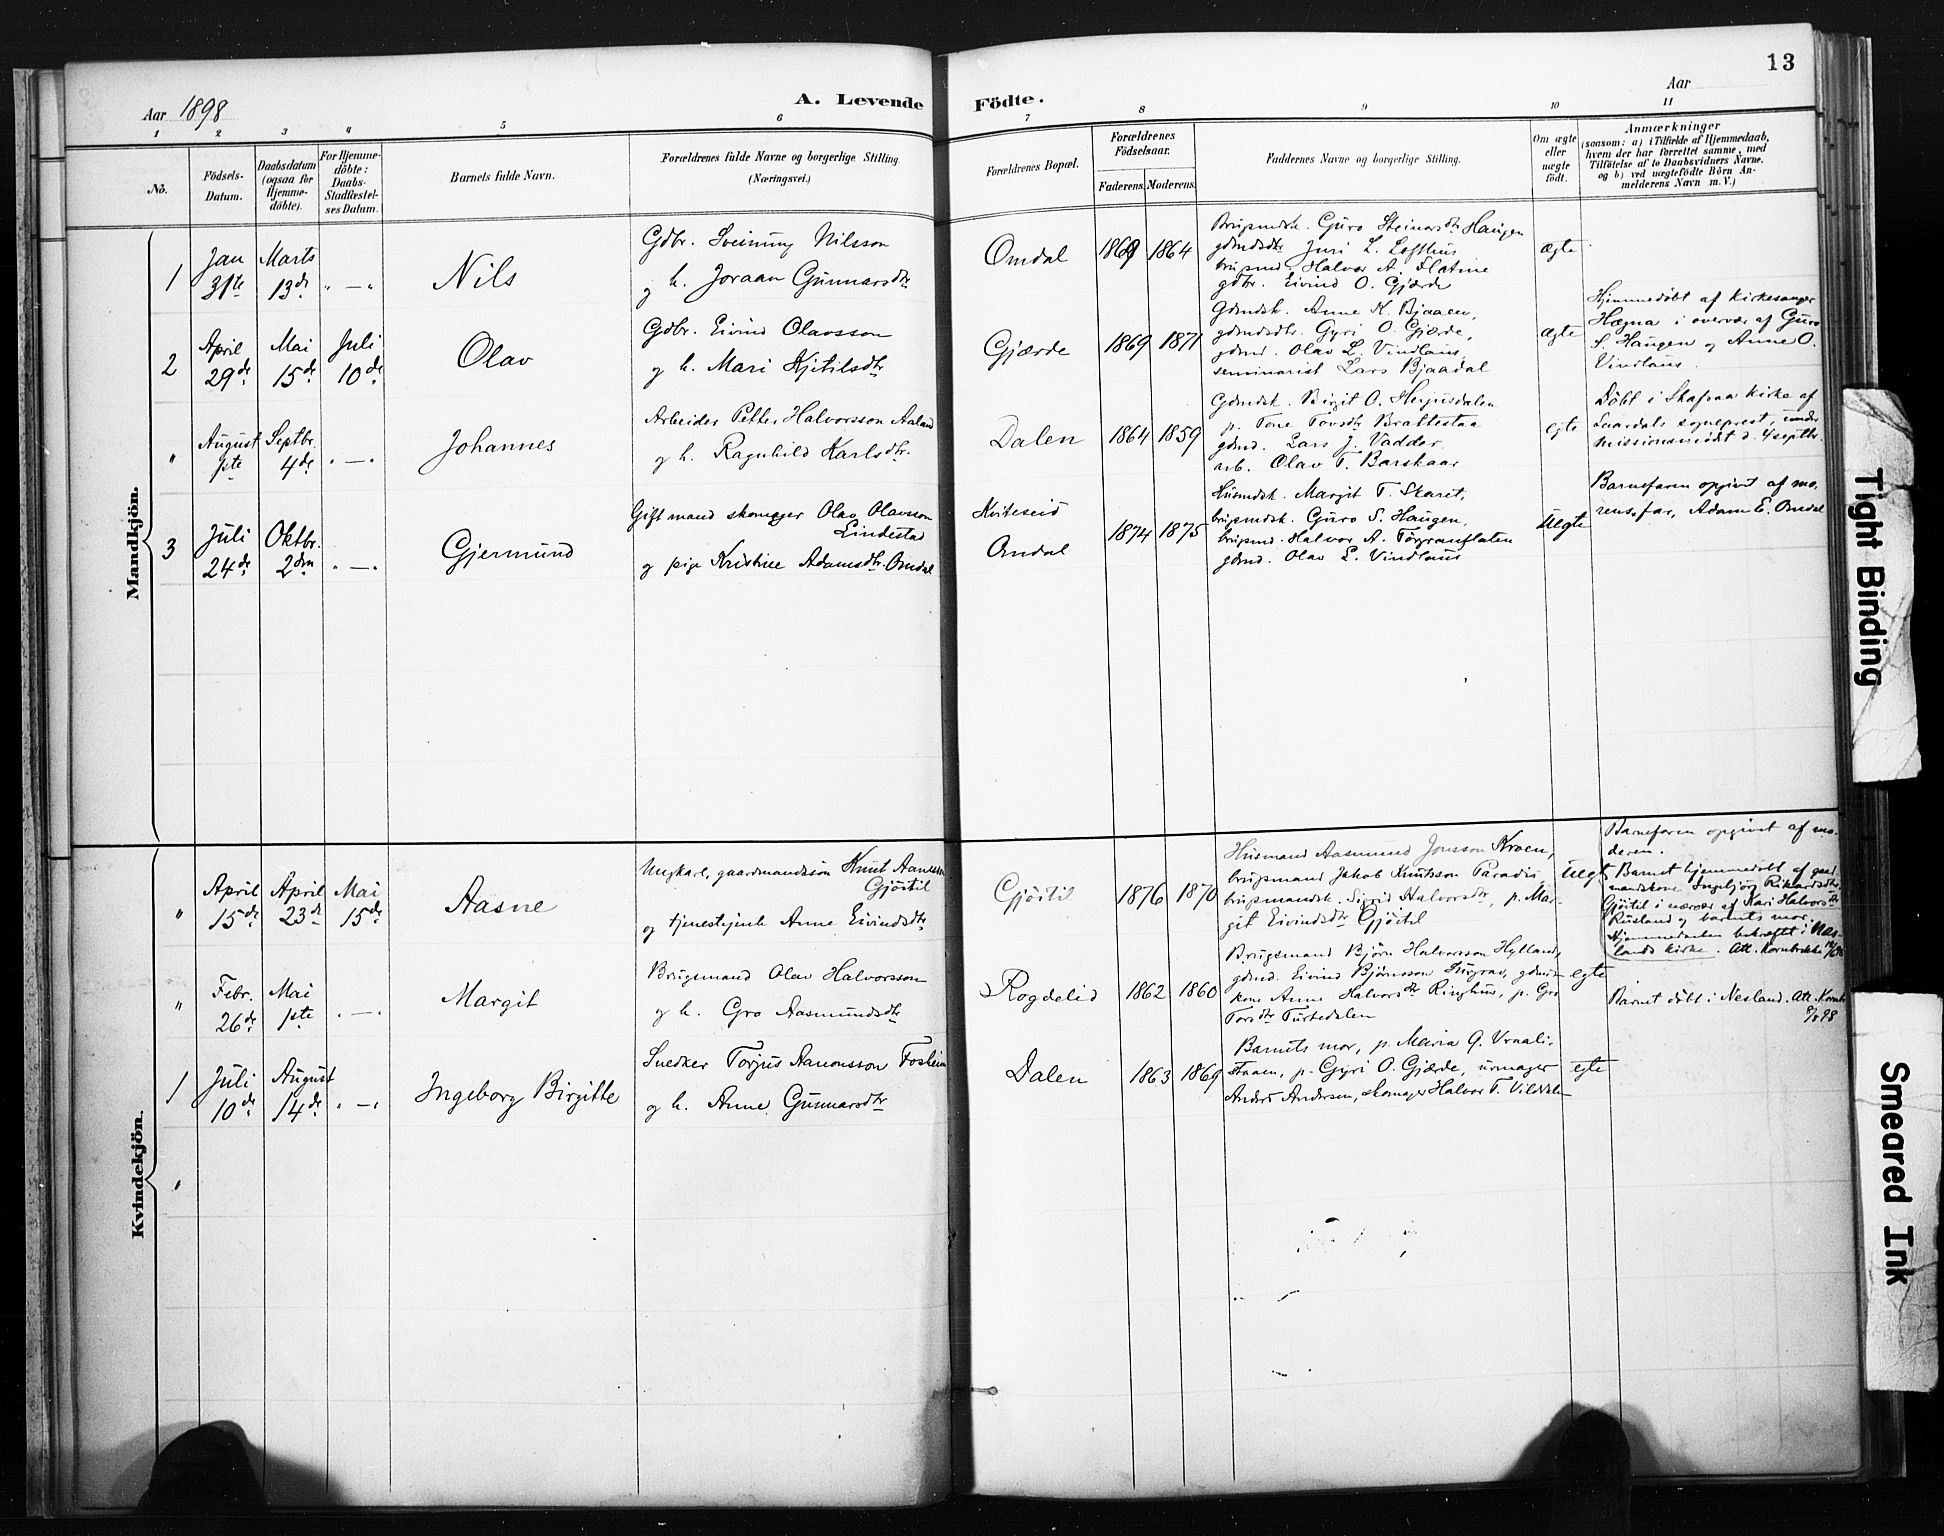 13
Aar 1898
A. Levende Födte.
Aar
1 2 3 4 5 6 7 8 9 10 11
No.
Födsels-Datum.
Daabsdatum (ogsaa for Hjemme-döbte).
For Hjemme-döbte: Daabs-Stadfæstel-ses Datum.
Barnets fulde Navn.
Forældrenes fulde Navne og borgerlige Stilling.
(Næringsvei.)
Forældrenes Bopæl.
Forældrenes Födselsaar.
Faderens. Moderens.
Faddernes Navne og borgerlige Stilling.
Om ægte eller uægte födt.
Anmærkninger
(saasom: a) i Tilfælde af Hjemmedaab,
hvem der har forrettet samme, med
Tilföielse af to Daabsvidners Navne.
og b) ved uægtefödte Börn An-
melderens Navn m. V.)
Mandkjön.
1
Jan 31te
Marts 13de
" — "
Nils
Gdbr. Sveinung Nilsson
og h. Joraan Gunnarsdtr
Omdal
1869 1864
Brugsmdsk. Guro Steinarsdtr Haugen
gdmdsdtr Juri L. Lofthus
brugsmd. Halvor A. Flatine
gdbr. Eivind O. Gjærde
ægte
2
April 29de
Mai 15de
Juli 10de
Olav
Gdbr. Eivind Olavsson
og h. Mari Kjetilsdtr
Gjærde
1869 1871
Gdmdsk. Anne K. Bjaaen,
gdmdsdtr. Gyri O. Gjærde,
gdmd. Olav L. Vindlaus,
seminarist Lars Bjaadal
ægte
Hjemmedøbt af Kirkesanger
Hægna i overvær af Guro
S. Haugen og Anne O.
Vindlaus.
"
August 1ste
Septbr. 4de
" — "
Johannes
Arbeider Petter Halvorsson Aaland
og h. Ragnhild Karlsdtr.
Dalen
1864 1859
Gdmdsk. Birgit O. Herjusdalen
p. Tone Tovsdtr Brattestaa
gdmd. Lars J. Vadder
arb. Olav T. Barskaar
egte
Døbt i Skafsaa Kirke af
Laardals sogneprest, under
missionsmødet d. 4 septbr.
3
Juli 24de
Oktbr. 2den
" — "
Gjermund
Gift mand skomager Olav Olavsson
Lindestad
og pige Kristine Adamsdtr. Omdal
Kviteseid
Omdal
1874 1875
Husmdsk. Margit T. Skaret,
brugsmdsk. Guro S. Haugen,
brugsmd. Halvor A. Torgrunflaten
gdmd. Olav L. Vindlaus
Uegte
Barnefaren opgivet af mo-
rens far, Adam E. Omdal
Kvindekjön.
"
April 15de
April 23de
Mai 15de
Aasne
Ungkarl, gaardmandssøn Knut Aanesson
Gjöitil
og tjenestejente Anne Eivindsdtr
Gjöitil
1876 1870
Husmand Aasmund Jonsson Kroen,
brugsmand Jakob Knutsson Paradis
brugsmandsk. Sigrid Halvorsdtr, p. Mar-
git Eivindsdtr Gjöitil
Uegt
Barnefaren opgivet af mo-
deren.
Barnet hjemmedøbt af gaard
mandskone Ingebjörg Rikardsdtr
Gjöitil i nærvær af Kari Halvorsdtr
Rusland og barnets mor.
Hjemmedaaben bekræftet i Nes-
lands kirke.
"
Febr. 26de
Mai 1ste
" — "
Margit
Brugsmand Olav Halvorsson
og h. Gro Aasmundsdtr
Rogdelid
1862 1860
Brugsmand Bjørn Halvorsson Hylland,
gdmd. Eivind Bjørnsson, gdmd-
kone Anne Halvorsdtr Ringhus, p. Gro
Torsdtr Turtedalen
egte
Barnet døbt i Nesland.
1
Juli 10de
August 14de
" — "
Ingeborg Birgitte
Snedker Torjus Aanonsson Fosheim
og h. Anne Gunnarsdtr
Dalen
1863 1869
Barnets mor, p. Maria G. Vraali-
straen, p. Gyri O. Gjærde, urmager
Anders Andersen, skomager Halvor T. Vilddalen
egte
"
Tight Binding
Smeared Ink